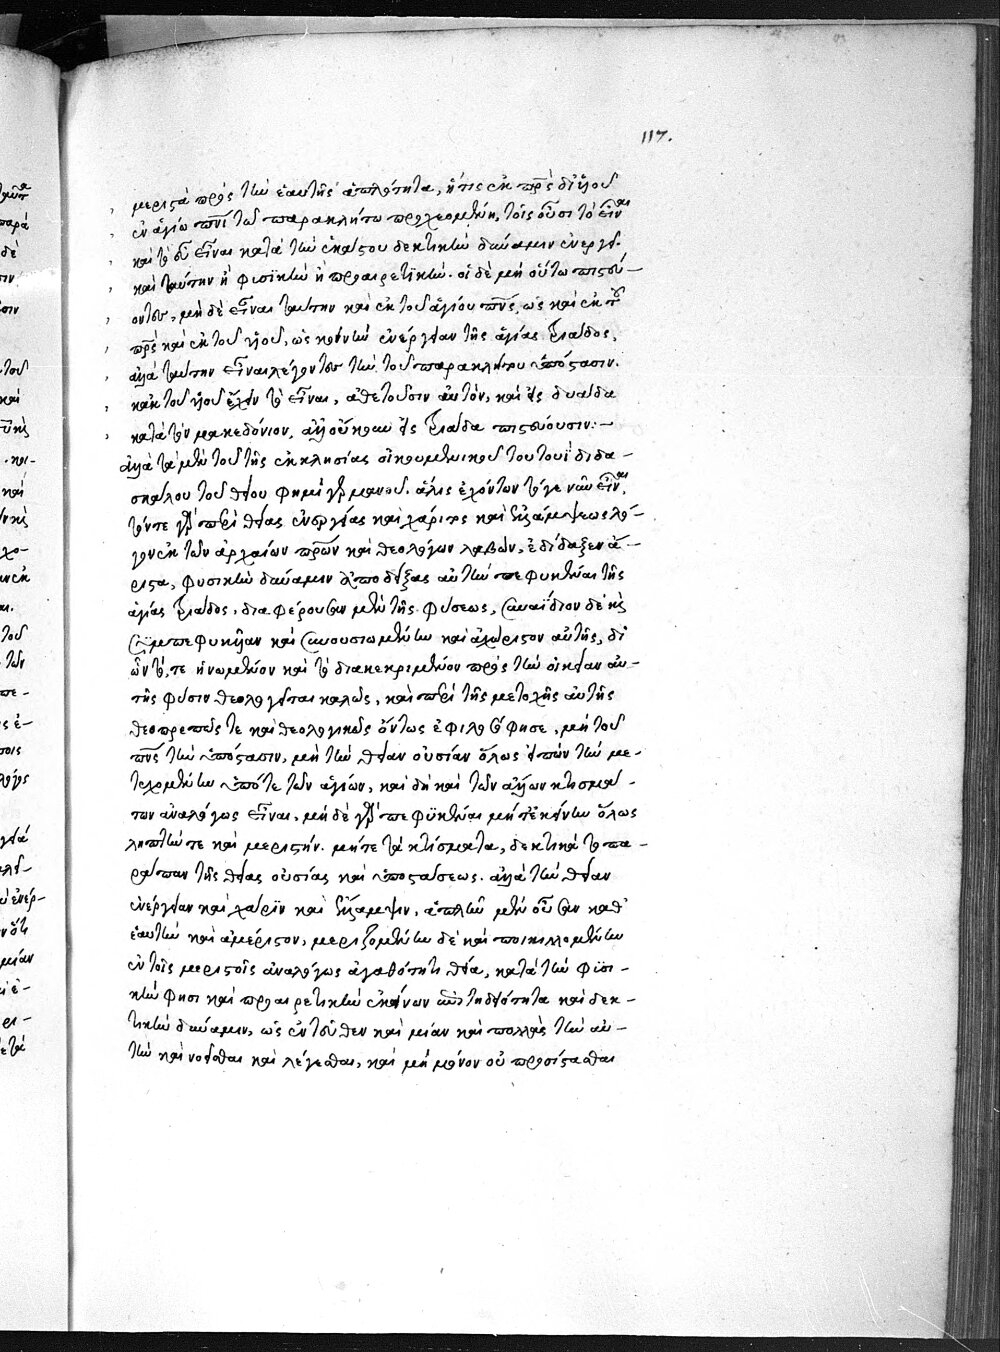 117.
μεριστὰ πρὸς τὴν ἑαυτῆς ἁπλότητα, ἥτις ἐκ πρς δι' υἱοῦ
ἐν ἁγίω πνι τῶ παρακλήτω προχεομένη, τοῖς οὖσι τὸ εἶναι
καὶ τὸ εὖ εἶναι κατὰ τὴν ἑκάστου δεκτικὴν δύναμιν ἐνεργεῖ.
καὶ ταύτην ἢ φυσικὴν ἢ προαιρετικήν. οἱ δὲ μὴ οὕτω πιστεύ-
οντες, μὴ δὲ εἶναι ταύτην καὶ ἐκ τοῦ ἁγίου πνς, ὡς καὶ ἐκ τοῦ
πρς καὶ ἐκ τοῦ υἱοῦ, ὡς κοινὴν ἐνέργειαν τῆς ἁγίας τριάδος,
ἀλλὰ ταύτην εἶναι λέγοντες τὴν τοῦ παρακλήτου ὑπόστασιν.
κἀκ τοῦ υἱοῦ ἔχειν τὸ εἶναι, ἀθετοῦσιν αὐτόν, καὶ εἰς δυάδα
κατὰ τὸν μακεδόνιον, ἀλλ' οὐκ εἰς τριάδα πιστεύουσιν:-
ἀλλὰ τὰ μὲν τοῦ τῆς ἐκκλησίας οἰκουμενικοῦ τουτουῒ διδα-
σκάλου τοῦ θείου φημὶ γερμανοῦ. ἅλις ἐχόντων τό γε νῦν εἶναι,
τόν τε γὰρ περὶ θείας ἐνεργείας καὶ χάριτος καὶ ἐλλάμψεως λό-
γον ἐκ τῶν ἀρχαίων πρων καὶ θεολόγων λαβών, ἐδίδαξεν ἄ-
ριστα, φυσικὴν δύναμιν ἀποδείξας αὐτὴν πεφυκέναι τῆς
ἁγίας τριάδος, διαφέρουσαν μὲν τῆς φύσεως, συναΐδιον δὲ καὶ
συμπεφυκυῖαν καὶ συνουσιωμένην καὶ ἀχώριστον αὐτῆς, δι'
ὧν τό, τε ἡνωμένον καὶ τὸ διακεκριμένον πρὸς τὴν οἰκείαν αὐ-
τῆς φύσιν θεολογεῖται καλῶς, καὶ περὶ τῆς μετοχῆς αὐτῆς
θεοπρεπῶς τε καὶ θεολογικῶς ὄντως ἐφιλοσόφησε, μὴ τοῦ
πνς τὴν ὑπόστασιν, μὴ τὴν θείαν οὐσίαν ὅλως εἰπὼν τὴν με-
τεχομένην ὑπό τε τῶν ἁγίων, καὶ δὴ καὶ τῶν ἄλλων κτισμά-
των ἀναλόγως εἶναι, μὴ δὲ γὰρ πεφυκέναι μήτ' ἐκείνην ὅλως
ληπτήν τε καὶ μεριστήν. μήτε τὰ κτίσματα, δεκτικὰ τὸ πα-
ράπαν τῆς θείας οὐσίας καὶ ὑποστάσεως. ἀλλὰ τὴν θείαν
ἐνέργειαν καὶ χάριν καὶ ἔλλαμψιν, ἁπλῆν μὲν οὖσαν καθ'
ἑαυτὴν καὶ ἀμέριστον, μεριζομένην δὲ καὶ ποικιλλομένην
ἐν τοῖς μεριστοῖς ἀναλόγως ἀγαθότητι θεία, κατὰ τὴν φυσι-
κήν φησι καὶ προαιρετικὴν ἐκείνων ἐπιτηδειότητα καὶ δεκ-
τικὴν δύναμιν, ὡς ἐντεῦθεν καὶ μίαν καὶ πολλὰς τὴν αὐ-
τὴν καὶ νοεῖσθαι καὶ λέγεσθαι, καὶ μὴ μόνον οὐ προσίστασθαι